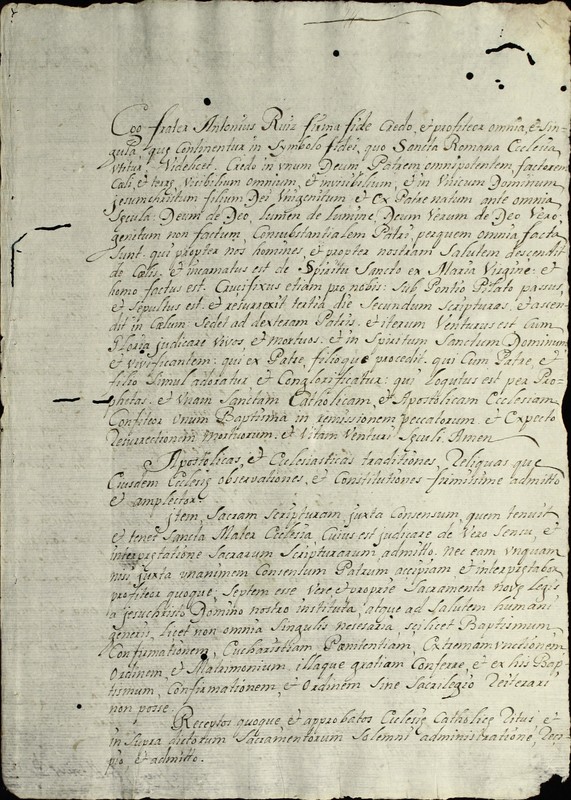 Ego frater Antonius Ruiz firma fide Credo, et profiteor omnia, et Sin-
gula, quę Continentur in Symbolo fidei, quo Sancta Romana Ecclesia
Vtitur. Videlicet. Credo in vnum Deum Patrem omnipotentem, factorem
Cæli, et terrę, Visibilium omnium, et invisibilium, et in Vnicum Dominum
Jesumchristum filium Dei Vnigenitum et Ex Patre natum ante omnia
Sęcula. Deum de Deo, lumen de lumine, Deum Verum de Deo Vero,
genitum non factum, Consubstantialem Patri, perquem omnia facta
Sunt. qui propter nos homines, et propter nostram Salutem descendit
de Cælis. et incarnatus est de Spiritu Sancto ex Maria Virgine: et
homo factus est. Crucifixus etiam pro nobis: Sub Pontio Pilato passus,
et Sepultus est. et resurrexit tertia die Secundum Scripturas. et ascen-
dit in Cælum: Sedet ad dexteram Patris. et iterum Venturus est Cum
Gloria judicare Vivos, et mortuos. et in Spiritum Sanctum Dominum
et vivificantem: qui ex Patre, filioque procedit. qui Cum Patre, et
filio Simul adoratur, et Conglorificatur: qui loqutus est per Pro-
phetas. et Vnam Sanctam Catholicam, et Apostolicam Ecclesiam
Confiteor Vnum Baptisma in remissionem peccatorum. et Expecto
Resurrectionem mortuorum. et Vitam Venturi Sęculi. Amen
Apostolicas, et Ecclesiasticas traditiones, Reliquas que
Eiusdem Ecclesię observationes, et Constitutiones firmissime admitto
et amplector.
jtem, Sacram Scripturam juxta Consensum, quem tenuit
et tenet Sancta Mater Ecclesia, Cuius est judicare de Vero Sensu, et
interpretatione Sacrarum Scripturarum admitto. Nec eam vnquam
nisi juxta unanimem Consensum Patrum accipiam et interpretabor
profiteor quoque Septem esse Vere, et proprie Sacramenta novę legis
a jesuchristo Domino nostro instituta, atque ad Salutem humani
generis, licet non omnia Singulis necesaria, scilicet Baptismum,
Confirmationem, Eucharistiam Pœnitentiam, Extremamvnctionem,
Ordinem, et Matrimonium, illaque gratiam Conferre, et ex his Bap-
tismum, Confirmationem, et Ordinem Sine Sacrilegio Reiterari
non posse.
Receptos quoque, et approbatos Ecclesię Catholicę Ritus, et
in Supra dictorum Sacramentorum Solemni administratione, Reci-
pio, et admitto.